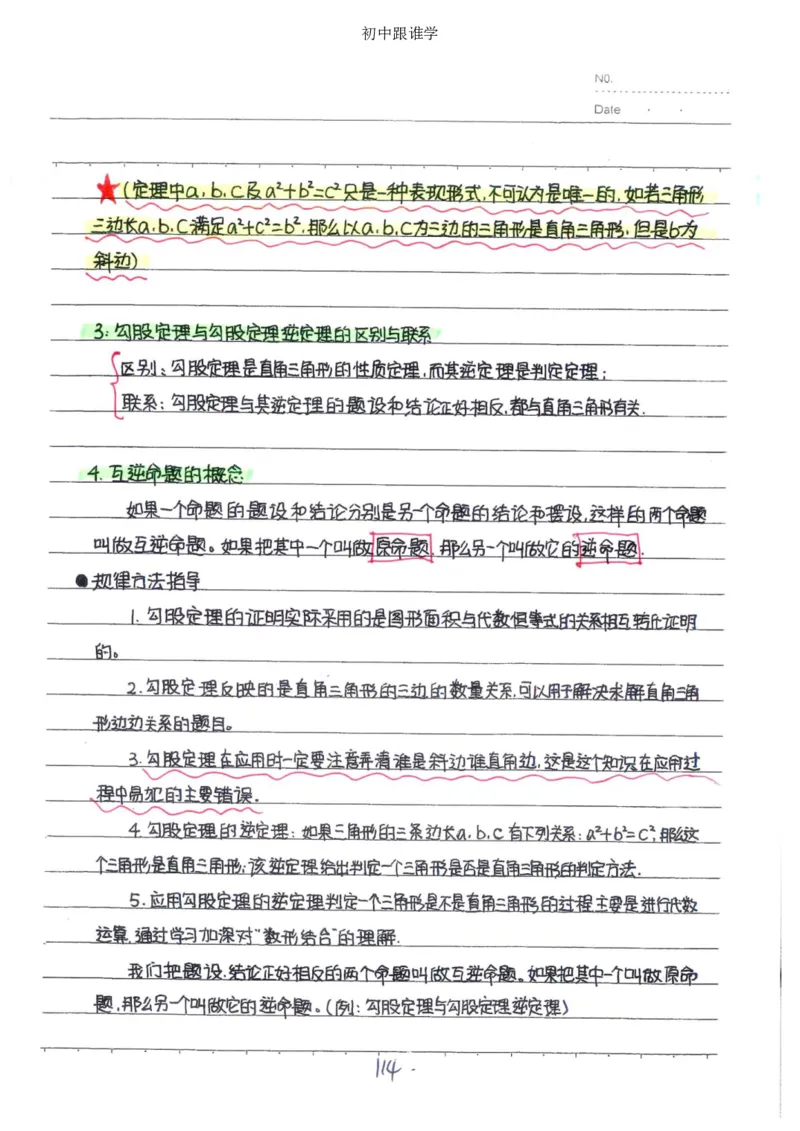 初中跟谁学
NO.
Date
★(定理中a,b,c及a²+b²=c²只是一种表现形式,不可认为是唯一的,如若三角形
三边长a,b,c满足a²+c²=b²,那么以a,b,c为三边的三角形是直角三角形,但是b为
斜边)
3:勾股定理与勾股定理逆定理的区别与联系
区别:勾股定理是直角三角形的性质定理,而其逆定理是判定定理;
联系:勾股定理与其逆定理的题设和结论正好相反,都与直角三角形有关.
4.互逆命题的概念
如果一个命题的题设和结论分别是另一个命题的结论和摆设,这样的两个命题
叫做互逆命题。如果把其中一个叫做原命题,那么另一个叫做它的逆命题.
●规律方法指导
1.勾股定理的证明实际采用的是图形面积与代数恒等式的关系相互转化证明
的。
2.勾股定理反映的是直角三角形的三边的数量关系,可以用于解决求解直角三角
形边边关系的题目。
3.勾股定理在应用时一定要注意弄清谁是斜边谁直角边,这是这个知识在应用过
程中易犯的主要错误.
4.勾股定理的逆定理:如果三角形的三条边长a,b,c有下列关系:a²+b²=c²,那么这
个三角形是直角三角形;该逆定理给出判定一个三角形是否是直角三角形的判定方法.
5.应用勾股定理的逆定理判定一个三角形是不是直角三角形的过程主要是进行代数
运算,通过学习加深对“数形结合”的理解.
我们把题设、结论正好相反的两个命题叫做互逆命题。如果把其中一个叫做原命
题,那么另一个叫做它的逆命题。(例:勾股定理与勾股定理逆定理)
114.